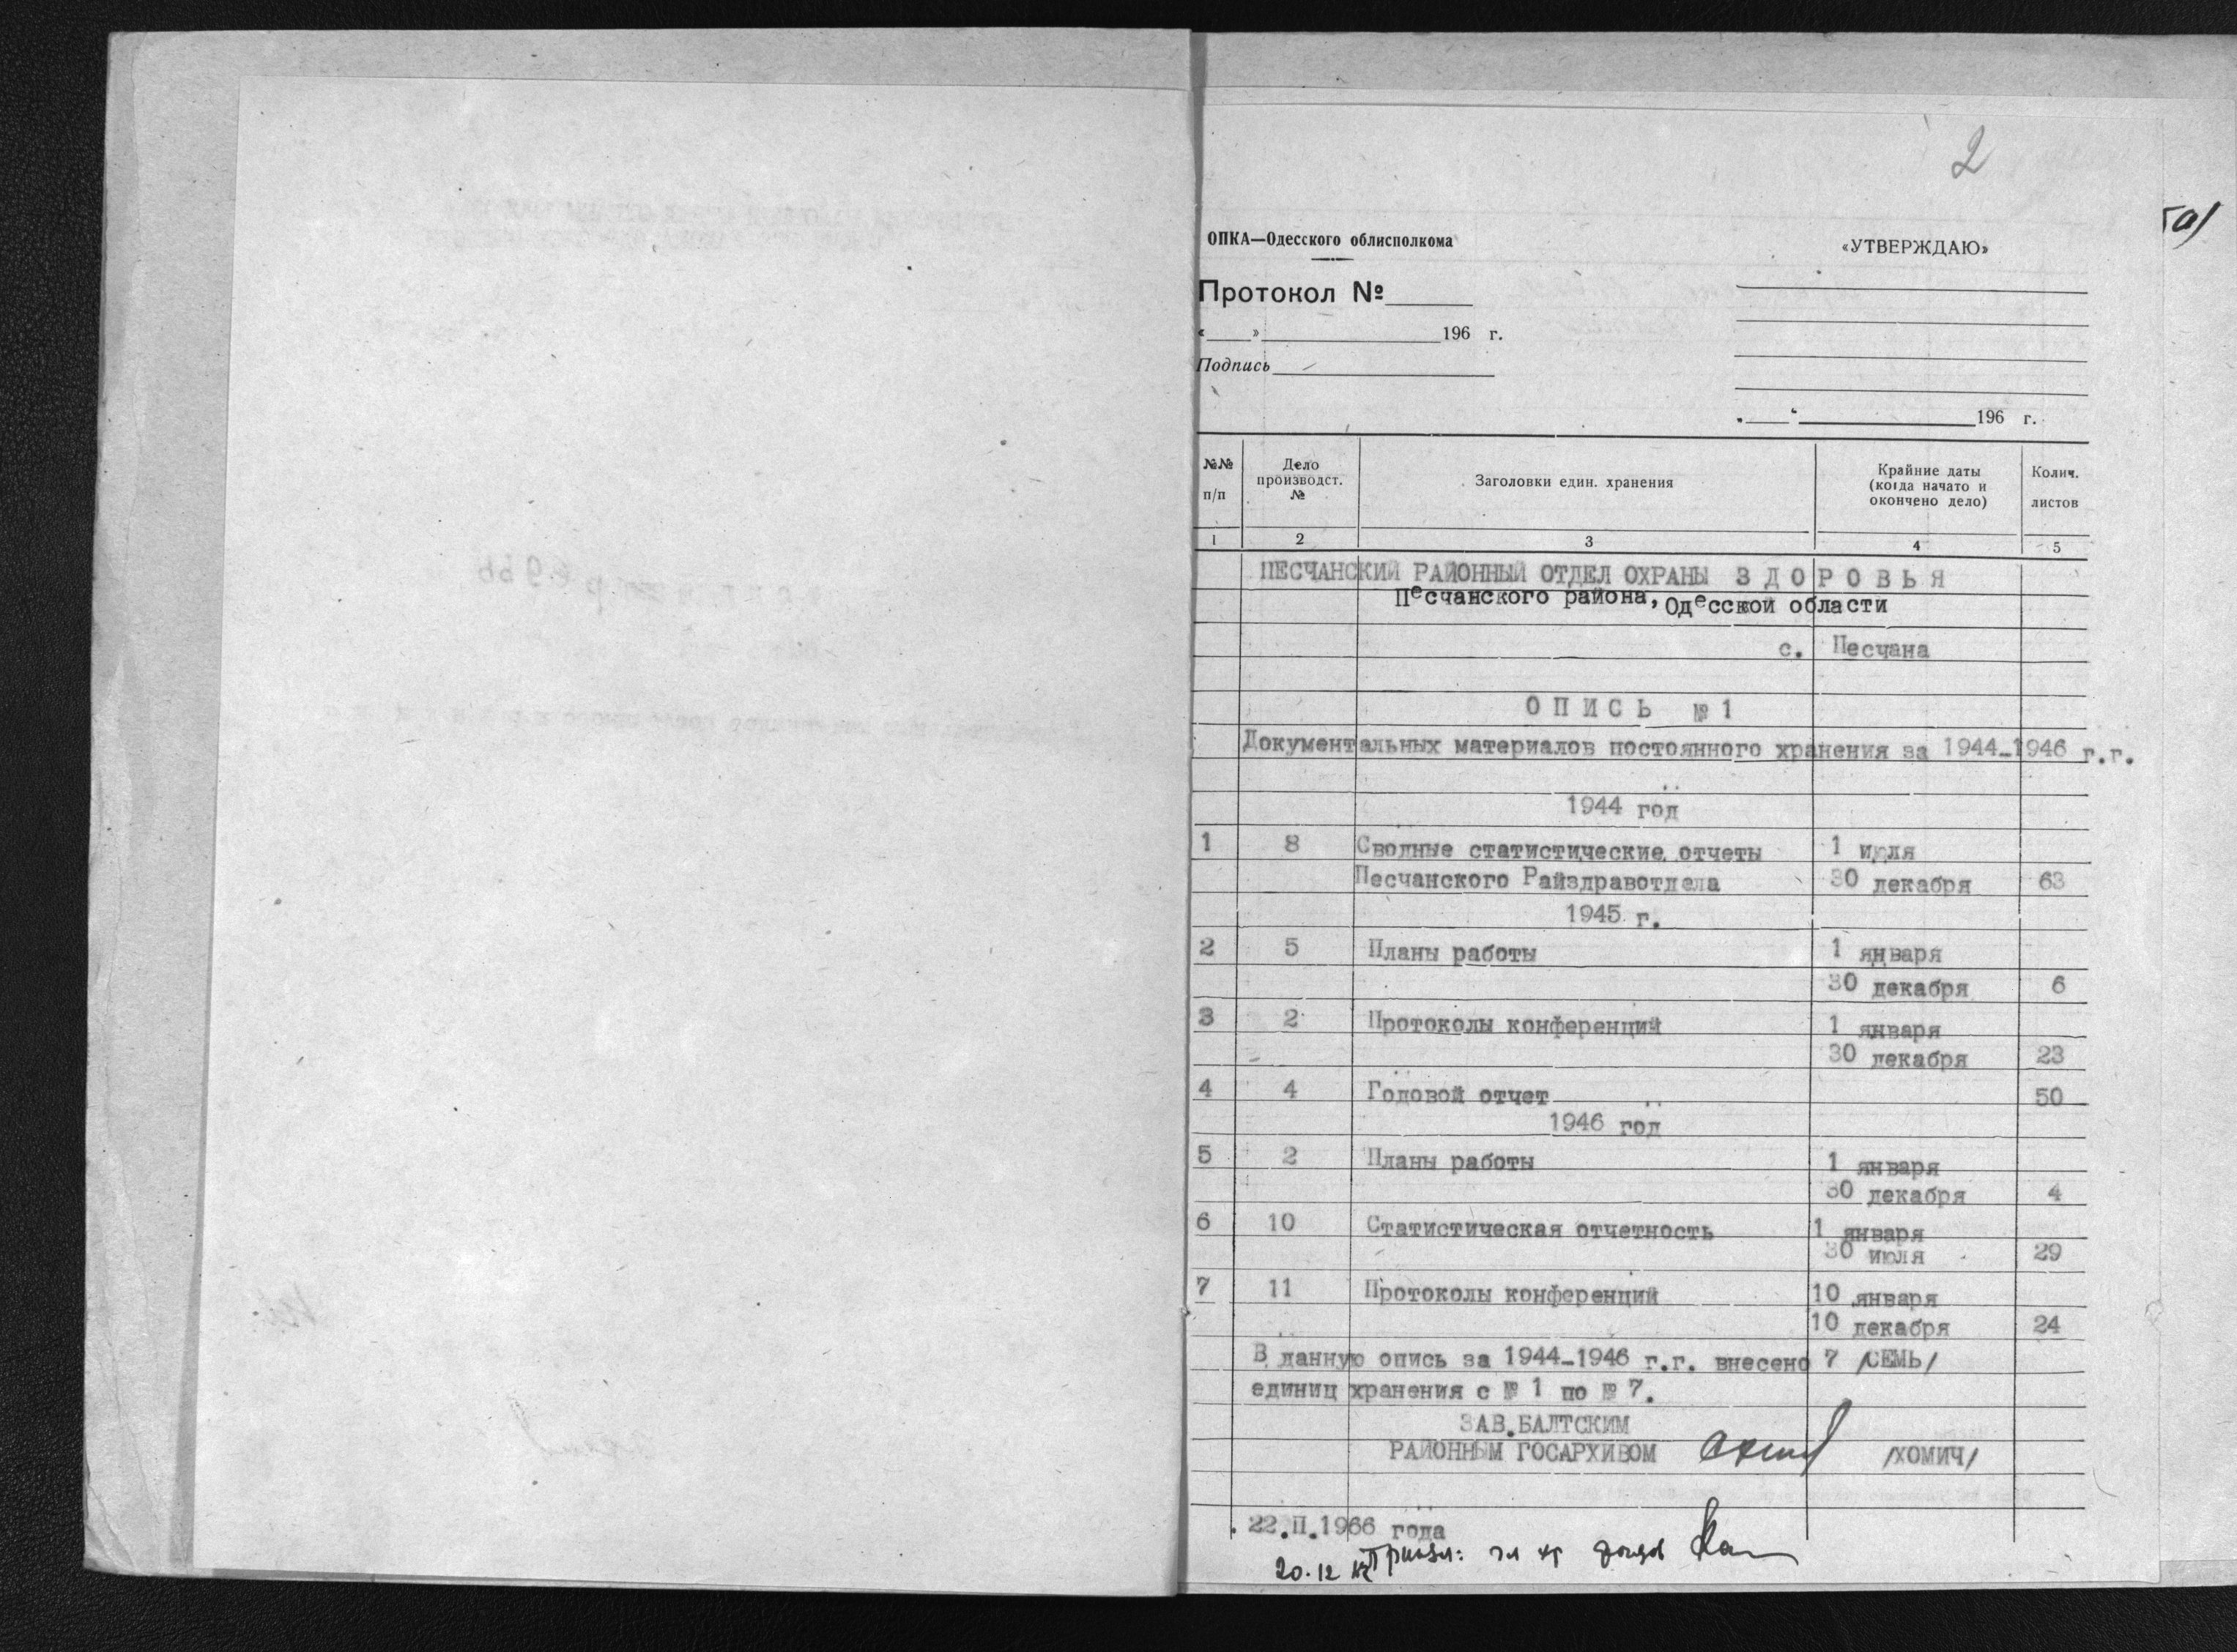 2
ОПКА—Одесского облисполкома
«УТВЕРЖДАЮ»
Протокол №
« » 196 г.
Подпись
„ “ 196 г.
№№ п/п
Дело производст. №
Заголовки един. хранения
Крайние даты (когда начато и окончено дело)
Колич. листов
1 2 3 4 5
ПЕСЧАНСКИЙ РАЙОННЫЙ ОТДЕЛ ОХРАНЫ З Д О Р О В Ь Я
Песчанского района, Одесской области
с. Песчана
О П И С Ь № 1
Документальных материалов постоянного хранения за 1944-1946 г.г.
1944 год
1 8 Сводные статистические отчеты 1 июля
Песчанского Райздравотдела 30 декабря 63
1945 г.
2 5 Планы работы 1 января
30 декабря 6
3 2 Протоколы конференций 1 января
30 декабря 23
4 4 Годовой отчет 50
1946 год
5 2 Планы работы 1 января
30 декабря 4
6 10 Статистическая отчетность 1 января
30 июля 29
7 11 Протоколы конференций 10 января
10 декабря 24
В данную опись за 1944-1946 г.г. внесено 7 /СЕМЬ/
единиц хранения с № 1 по № 7.
ЗАВ.БАЛТСКИМ
РАЙОННЫМ ГОСАРХИВОМ /ХОМИЧ/
22.II.1966 года
20.12